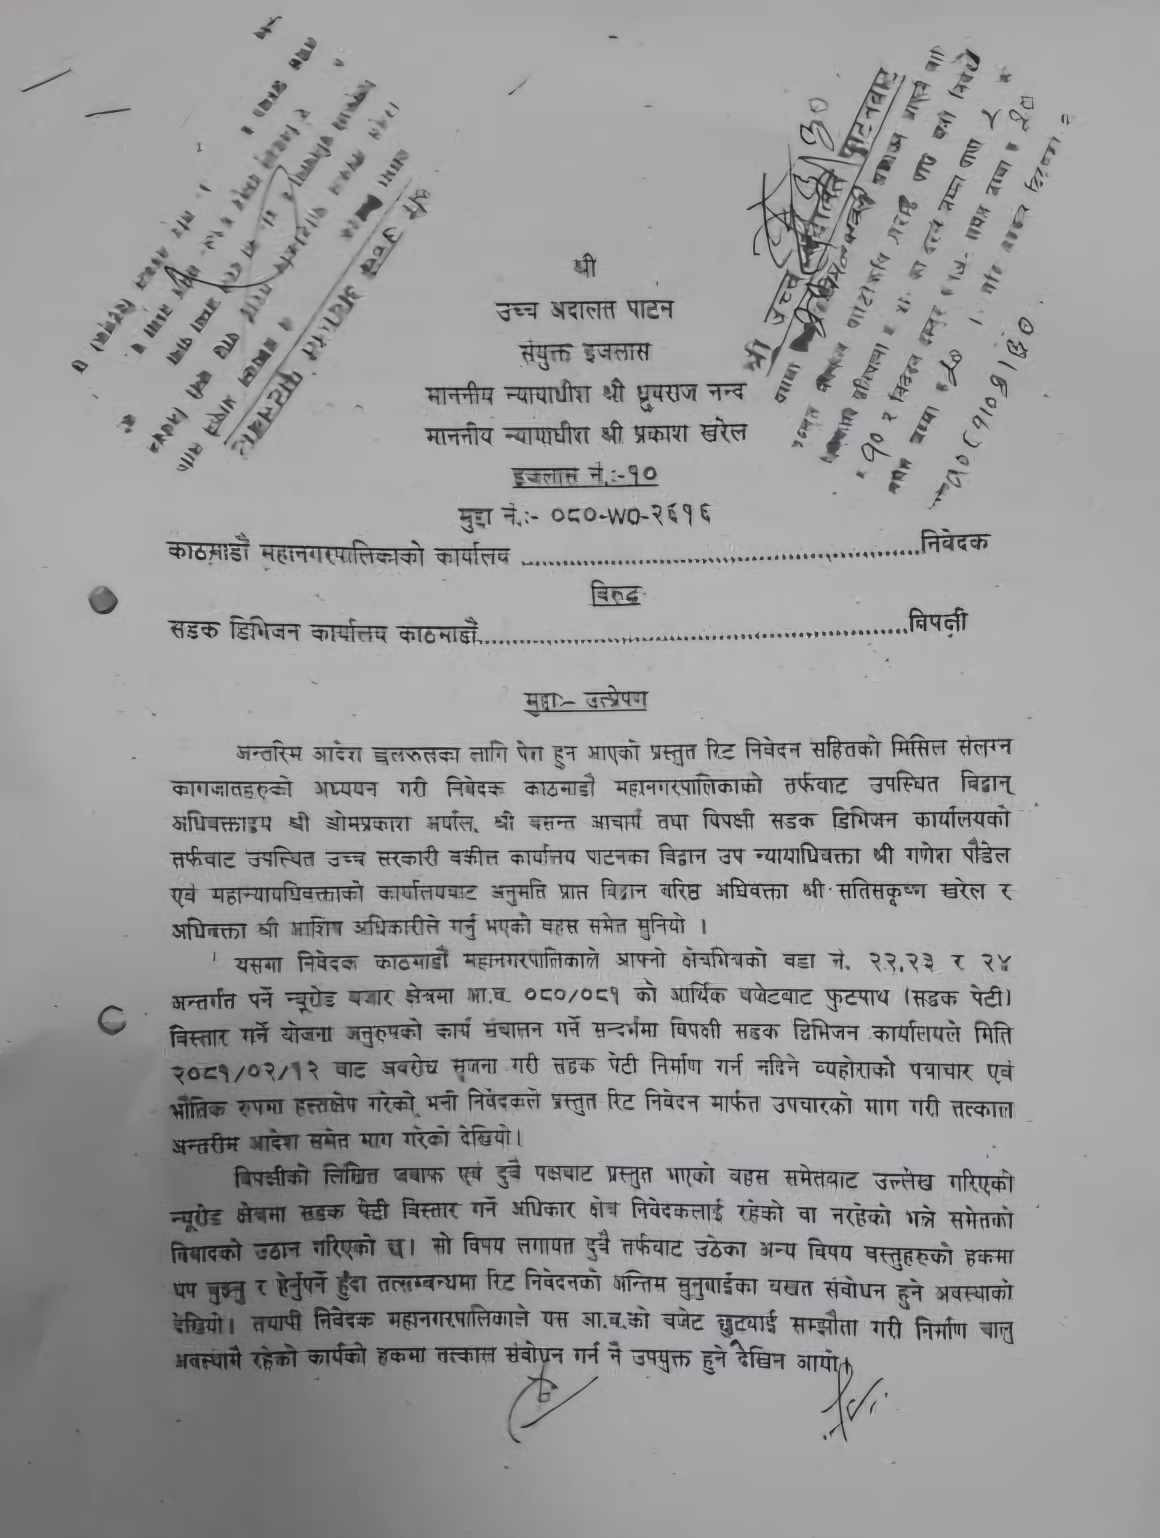 श्री
उच्च अदालत पाटन
संयुक्त इजलास
माननीय न्यायाधीश श्री ध्रुवराज नन्द
माननीय न्यायाधीश श्री प्रकाश खरेल
इजलास नं.:-१०
मुद्दा नं.:- ०८०-WO-२६१६
काठमाडौं महानगरपालिकाको कार्यालय ........................................निवेदक
विरुद्ध
सडक डिभिजन कार्यालय काठमाडौं........................................विपक्षी
मुद्दाः- उत्प्रेषण
अन्तरिम आदेश छलफलका लागि पेश हुन आएको प्रस्तुत रिट निवेदन सहितको मिसिल संलग्न
कागजातहरुको अध्ययन गरी निवेदक काठमाडौं महानगरपालिकाको तर्फबाट उपस्थित विद्वान्
अधिवक्ताद्वय श्री ओमप्रकाश अर्याल, श्री बसन्त आचार्य तथा विपक्षी सडक डिभिजन कार्यालयको
तर्फबाट उपस्थित उच्च सरकारी वकील कार्यालय पाटनका विद्वान उप न्यायाधिवक्ता श्री गणेश पौडेल
एवं महान्यायधिवक्ताको कार्यालयबाट अनुमति प्राप्त विद्वान वरिष्ठ अधिवक्ता श्री सतिसकृष्ण खरेल र
अधिवक्ता श्री आशिष अधिकारीले गर्नु भएको वहस समेत सुनियो ।
यसमा निवेदक काठमाडौं महानगरपालिकाले आफ्नो क्षेत्रभित्रको वडा नं. २२,२३ र २४
अन्तर्गत पर्ने न्यूरोड बजार क्षेत्रमा आ.व. ०८०/०८१ को आर्थिक बजेटबाट फुटपाथ (सडक पेटी)
विस्तार गर्ने योजना अनुरुपको कार्य संचालन गर्ने सन्दर्भमा विपक्षी सडक डिभिजन कार्यालयले मिति
२०८१/०२/१२ बाट अवरोध सृजना गरी सडक पेटी निर्माण गर्न नदिने व्यहोराको पत्राचार एवं
भौतिक रुपमा हस्तक्षेप गरेको भनी निवेदकले प्रस्तुत रिट निवेदन मार्फत उपचारको माग गरी तत्काल
अन्तरीम आदेश समेत माग गरेको देखियो।
विपक्षीको लिखित जवाफ एवं दुवै पक्षबाट प्रस्तुत भएको वहस समेतबाट उल्लेख गरिएको
न्यूरोड क्षेत्रमा सडक पेटी विस्तार गर्ने अधिकार क्षेत्र निवेदकलाई रहेको वा नरहेको भन्ने समेतको
विवादको उठान गरिएको छ। सो विषय लगायत दुवै तर्फबाट उठेका अन्य विषय वस्तुहरुको हकमा
थप बुझ्नु र हेर्नुपर्ने हुँदा तत्सम्बन्धमा रिट निवेदनको अन्तिम सुनुवाईका बखत संबोधन हुने अवस्थाको
देखियो। तथापी निवेदक महानगरपालिकाले यस आ.व.को बजेट छुटयाई सम्झौता गरी निर्माण चालु
अवस्थामै रहेको कार्यको हकमा तत्काल संबोधन गर्न नै उपयुक्त हुने देखिन आयो।